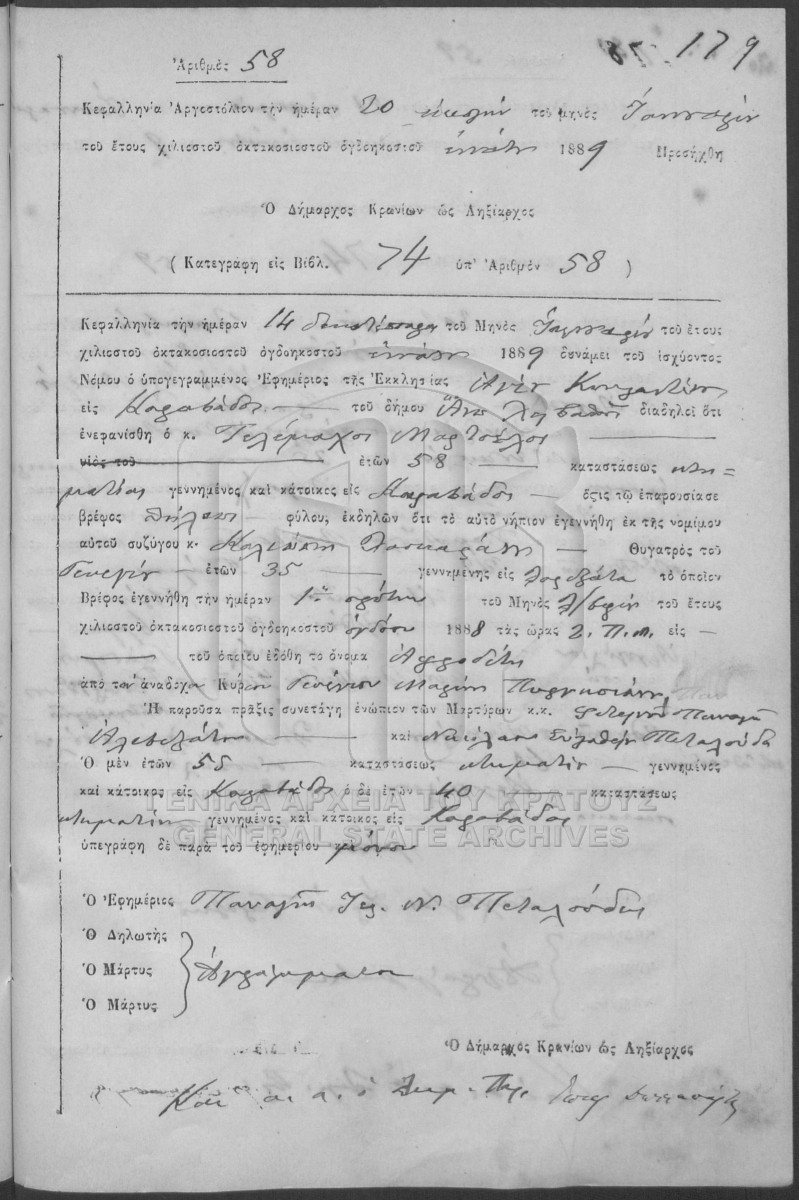 179
Ἀριθμὸς 58
Κεφαλληνία Ἀργοστόλιον τὴν ἡμέραν 20 εἰκοστὴν τοῦ μηνὸς Ἰανουαρίου
τοῦ ἔτους χιλιοστοῦ ὀκτακοσιοστοῦ ὀγδοηκοστοῦ ἐννάτου 1889 Προσήχθη
Ὁ Δήμαρχος Κρανίων ὡς Ληξίαρχος
( Κατεγράφη εἰς Βιβλ. 74 ὑπ' Ἀριθμὸν 58 )
Κεφαλληνία τὴν ἡμέραν 14 δεκατέσσαρα τοῦ Μηνὸς Ἰανουαρίου τοῦ ἔτους
χιλιοστοῦ ὀκτακοσιοστοῦ ὀγδοηκοστοῦ ἐννάτου 1889 δυνάμει τοῦ ἰσχύοντος
Νόμου ὁ ὑπογεγραμμένος Ἐφημέριος τῆς Ἐκκλησίας Ἁγίου Κωνσταντίνου
εἰς Καραβάδον τοῦ δήμου διαδηλοῖ ὅτι
ἐνεφανίσθη ὁ κ. Τελέμαχος Μαρτσέλος
υἱὸς τοῦ ἐτῶν 58 καταστάσεως κτη=
ματίας γεννημένος καὶ κάτοικος εἰς Καραβάδον ὅςτις τῷ ἐπαρουσίασε
βρέφος θήλεος φύλου, ἐκδηλῶν ὅτι τὸ αὐτὸ νήπιον ἐγεννήθη ἐκ τῆς νομίμου
αὐτοῦ συζύγου κ. Θυγατρὸς τοῦ
Γεωργίου ἐτῶν 35 γεννημένης εἰς τὸ ὁποῖον
Βρέφος ἐγεννήθη τὴν ἡμέραν 1ην πρώτην τοῦ Μηνὸς τοῦ ἔτους
χιλιοστοῦ ὀκτακοσιοστοῦ ὀγδοηκοστοῦ ὀγδόου 1888 τὰς ὥρας 2. π.μ. εἰς
τοῦ ὁποίου ἐδόθη τὸ ὄνομα Ἀφροδίτη
ἀπὸ τὸν ἀνάδοχον Κύριον Γεώργιον
Ἡ παροῦσα πράξις συνετάγη ἐνώπιον τῶν Μαρτύρων κ.κ. Παναγῆ
καὶ Νικόλαος Πεταλούδα
Ὁ μὲν ἐτῶν 55 καταστάσεως κτηματίου γεννημένος
καὶ κάτοικος εἰς Καραβάδον ὁ δὲ ἐτῶν 40 καταστάσεως
κτηματίου γεννημένος καὶ κάτοικος εἰς Καραβάδον
ὑπεγράφη δὲ παρὰ τοῦ ἐφημερίου μόνου
ΓΕΝΙΚΑ ΑΡΧΕΙΑ ΤΟΥ ΚΡΑΤΟΥΣ
GENERAL STATE ARCHIVES
Ὁ Ἐφημέριος Παναγῆς Ἱερ. Ν. Πεταλούδης
Ὁ Δηλωτὴς
Ὁ Μάρτυς Ἀγράμματοι
Ὁ Μάρτυς
Ὁ Δήμαρχος Κρανίων ὡς Ληξίαρχος